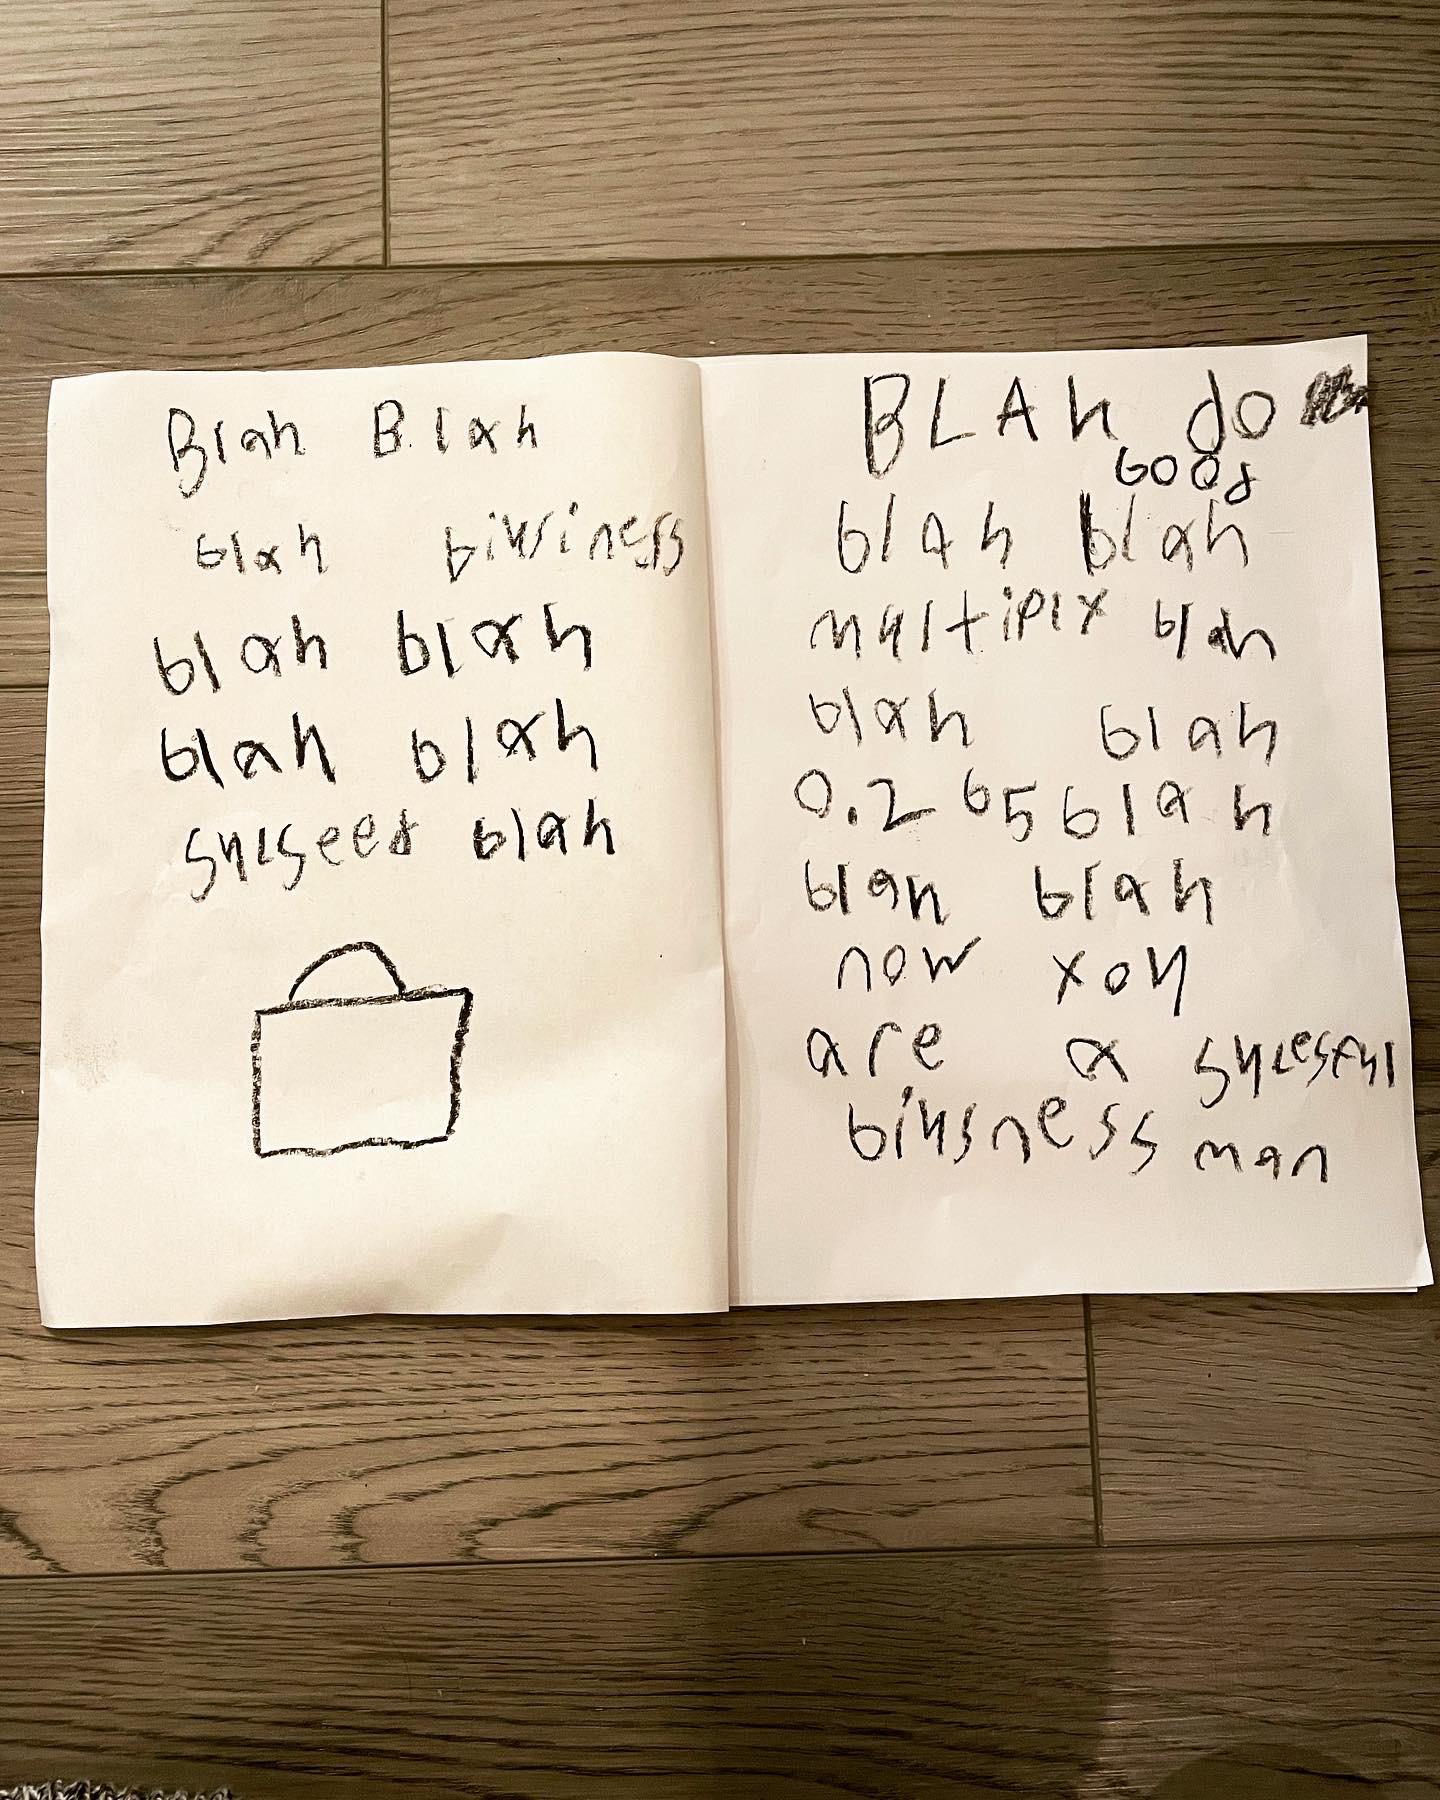 Blah Blah
blah biusiness
blah blah
blah blah
sucseed blah
BLAh do
Good
blah blah
multiply blah
blah blah
0.265 blah
blah blah
now you
are a sucesful
biusness man